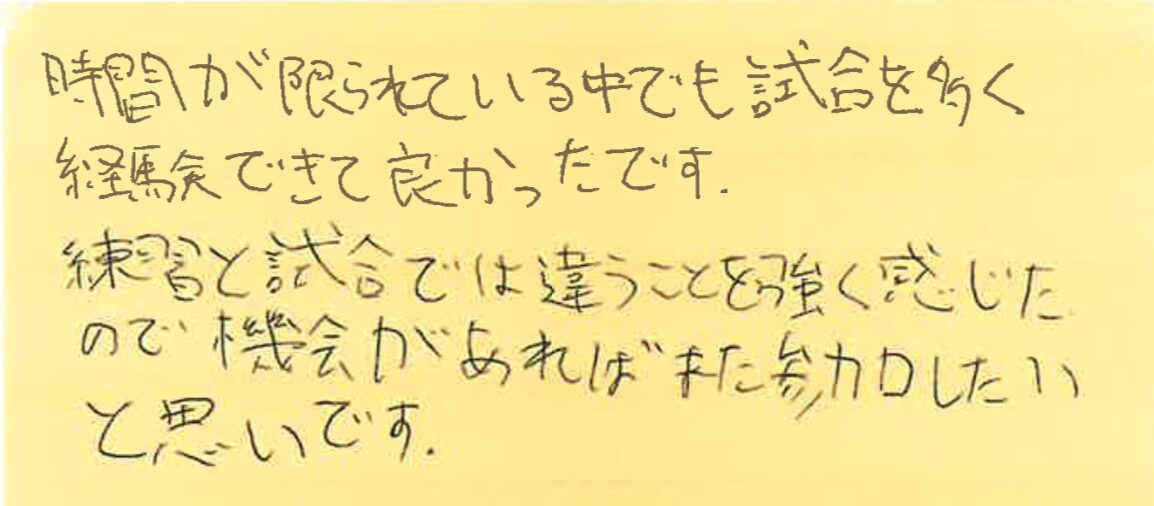 時間が限られている中でも試合を多く
経験できて良かったです.
練習と試合では違うことを強く感じた
ので機会があればまた参加したい
と思いです.